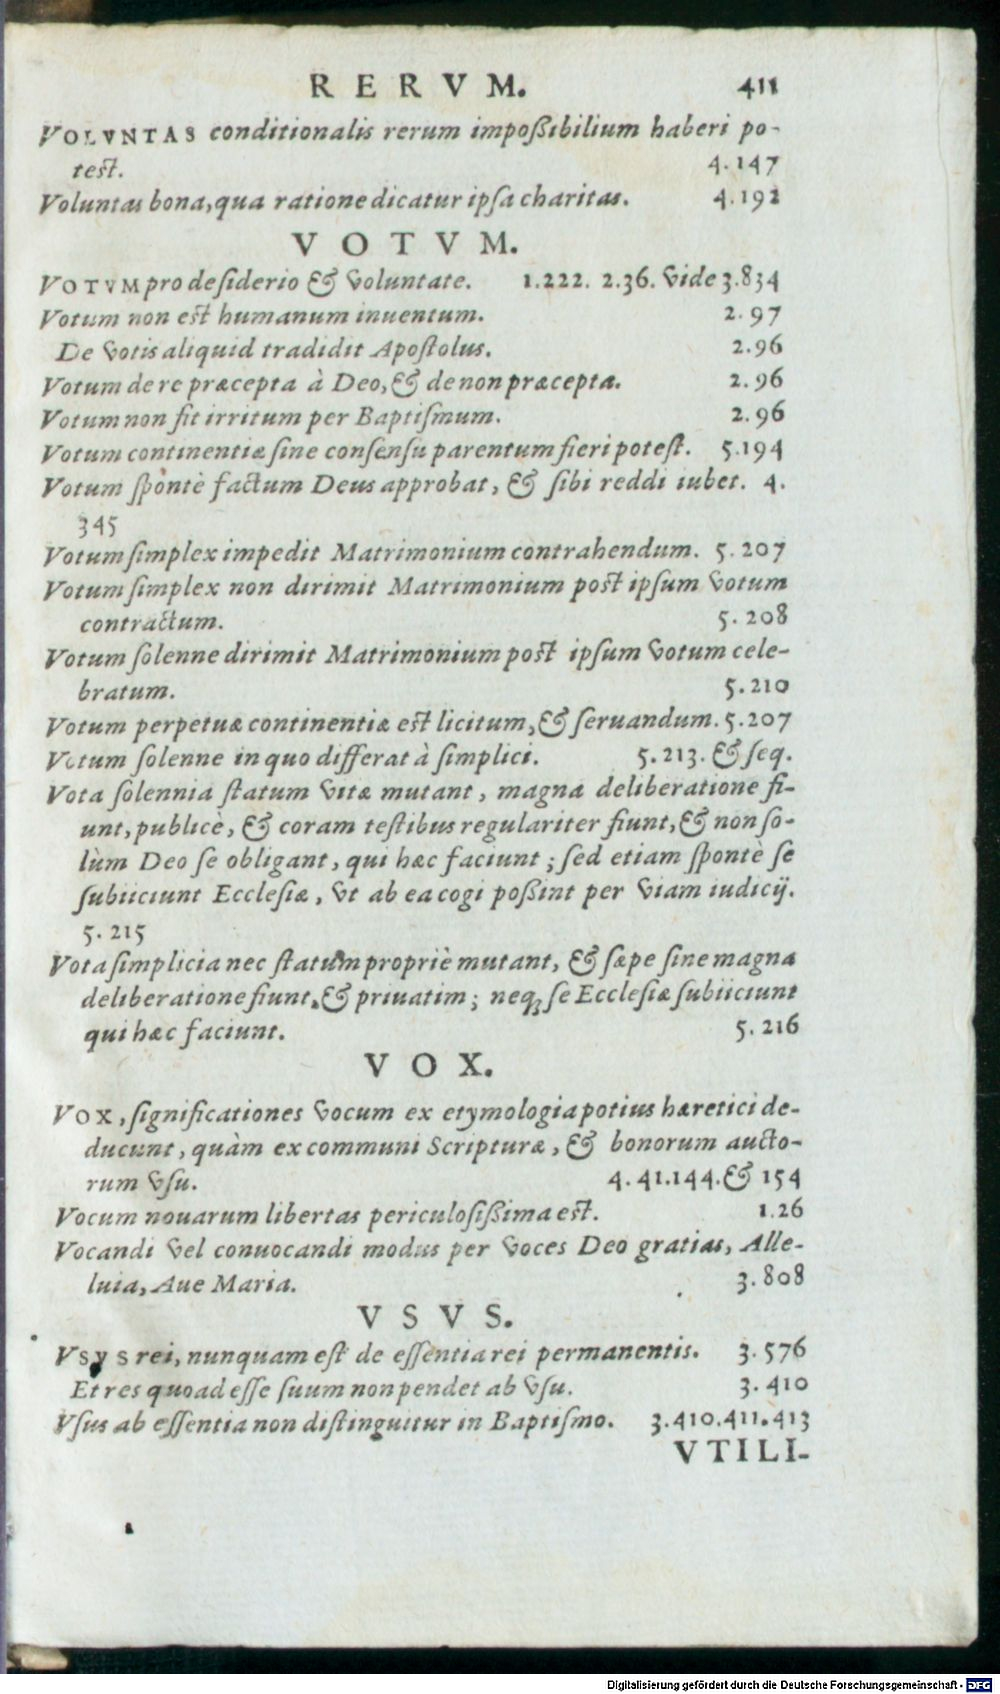 RERVM. 411
VOLVNTAS conditionalis rerum impoßibilium haberi po-
test. 4.147
Voluntas bona, qua ratione dicatur ipsa charitas. 4.192
VOTVM.
VOTVM pro desiderio & voluntate. 1.222. 2.36. vide 3.834
Votum non est humanum inuentum. 2.97
De votis aliquid tradidit Apostolus. 2.96
Votum de re præcepta à Deo, & de non præcepta. 2.96
Votum non fit irritum per Baptismum. 2.96
Votum continentiæ sine consensu parentum fieri potest. 5.194
Votum spontè factum Deus approbat, & sibi reddi iubet. 4.
345
Votum simplex impedit Matrimonium contrahendum. 5.207
Votum simplex non dirimit Matrimonium post ipsum votum
contractum. 5.208
Votum solenne dirimit Matrimonium post ipsum votum cele-
bratum. 5.210
Votum perpetuæ continentiæ est licitum, & seruandum. 5.207
Votum solenne in quo differat à simplici. 5.213. & seq.
Vota solennia statum vitæ mutant, magna deliberatione fi-
unt, publicè, & coram testibus regulariter fiunt, & non so-
lùm Deo se obligant, qui hæc faciunt; sed etiam spontè se
subiiciunt Ecclesiæ, vt ab ea cogi poßint per viam iudicij.
5.215
Vota simplicia nec statum propriè mutant, & sæpe sine magna
deliberatione fiunt, & priuatim; neq; se Ecclesiæ subiiciunt
qui hæc faciunt. 5.216
VOX.
VOX, significationes vocum ex etymologia potius hæretici de-
ducunt, quàm ex communi Scripturæ, & bonorum aucto-
rum vsu. 4.41.144. & 154
Vocum nouarum libertas periculosißima est. 1.26
Vocandi vel conuocandi modus per voces Deo gratias, Alle-
luia, Aue Maria. 3.808
VSVS.
VSVS rei, nunquam est de essentia rei permanentis. 3.576
Et res quoad esse suum non pendet ab vsu. 3.410
Vsus ab essentia non distinguitur in Baptismo. 3.410.411.413
VTILI-
Digitalisierung gefördert durch die Deutsche Forschungsgemeinschaft - DFG